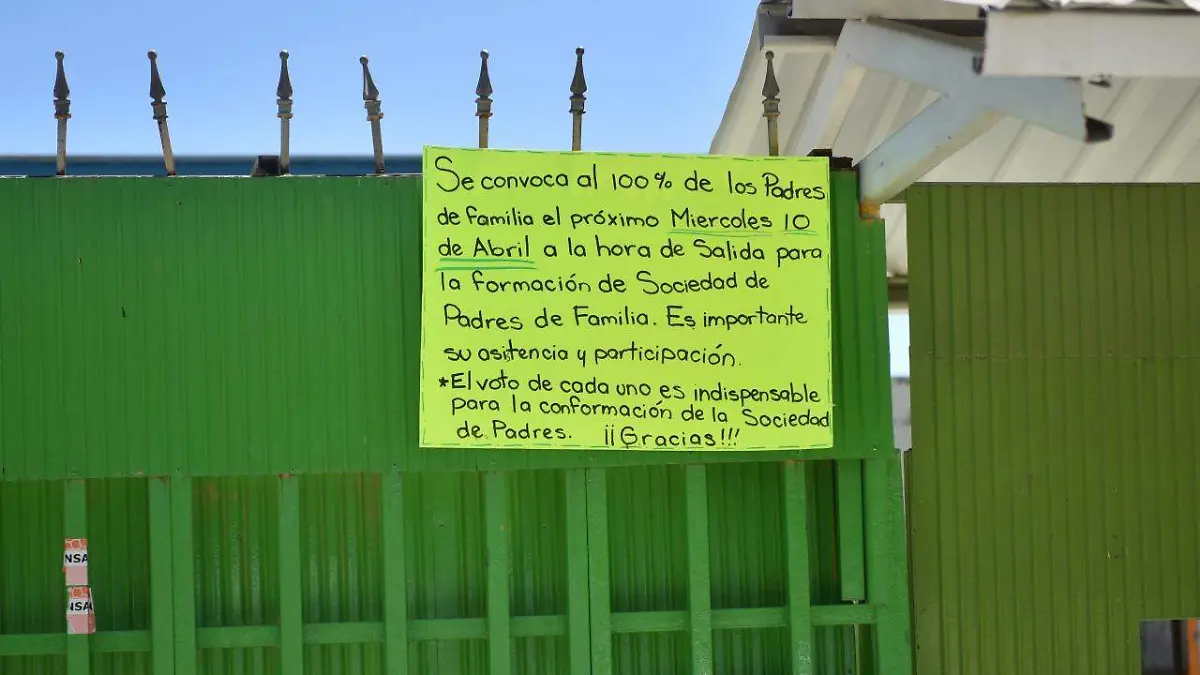 Se convoca al 100% de los Padres
de familia el próximo Miercoles 10
de Abril a la hora de Salida para
la formación de Sociedad de
Padres de Familia. Es importante
su asitencia y participación.
*El voto de cada uno es indispensable
para la conformación de la Sociedad
de Padres. ¡¡Gracias!!!
NSA
NSA